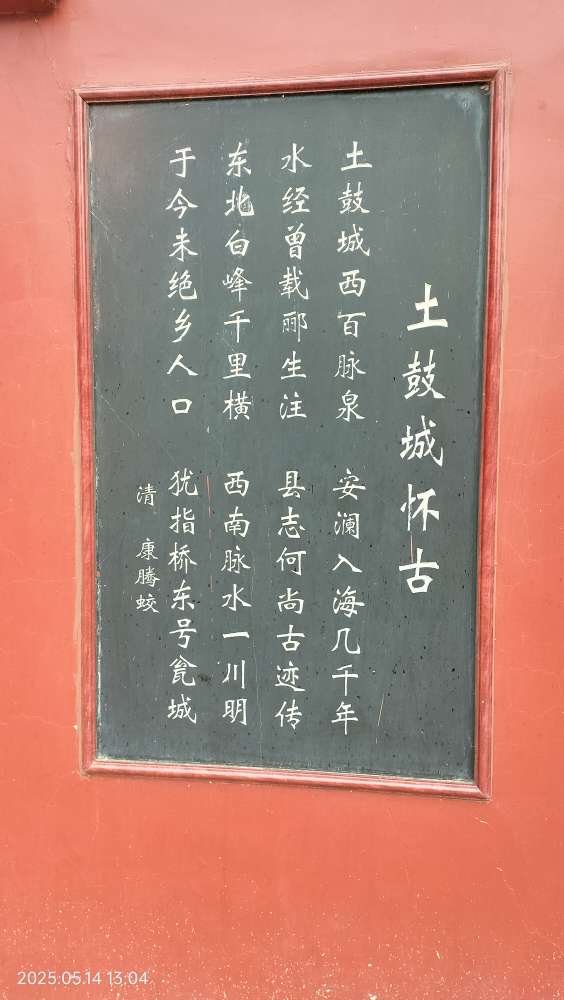 土鼓城怀古
土鼓城西百脉泉 安澜入海几千年
水经曾载郦生注 县志何尚古迹传
东北白峰千里横 西南脉水一川明
于今未绝乡人口 犹指桥东号瓮城
清 康腾蛟
2025.05.14 13:04